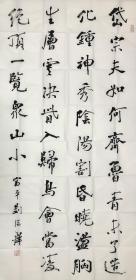 岱宗夫如何齊魯青未了造
化鍾神秀陰陽割昏曉盪胸
生層雲決眥入歸鳥會當凌
絕頂一覽眾山小
富平劉